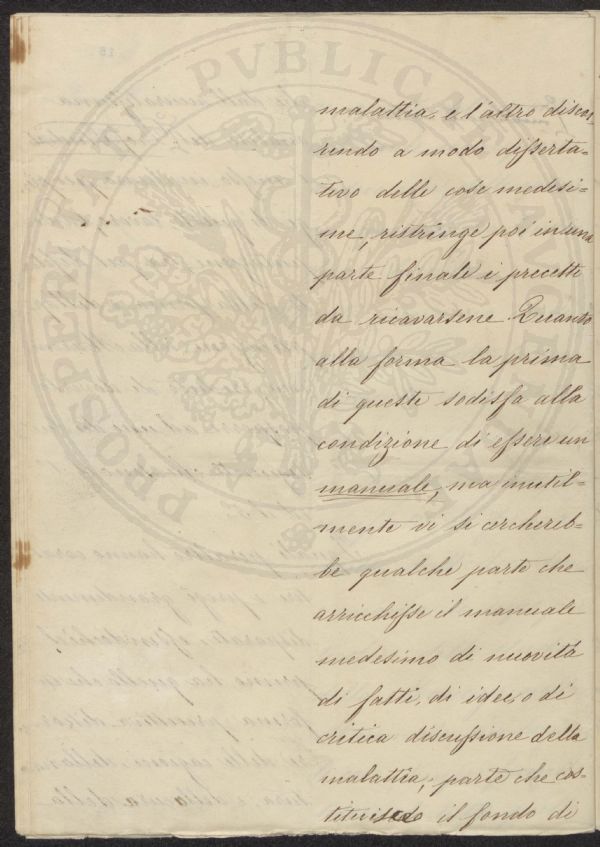 malattia, e l'altro discor,
rendo a modo disserta=
tivo delle cose medesi=
me, ristringe poi in una
parte finale i precetti
da ricavarsene. Quanto
alla forma la prima
di queste sodisfa alla
condizione di essere un
manuale, ma inutil=
mente vi si cerchereb=
be qualche parte che
arricchisse il manuale
medesimo di nuovità
di fatti, di idee, o di
critica discussione della
malattia; parte che cos=
tituisce il fondo di
PROSPERITATI PVBLICAE AVGENDAE